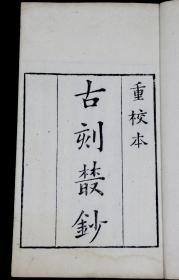 重校本
古刻叢鈔